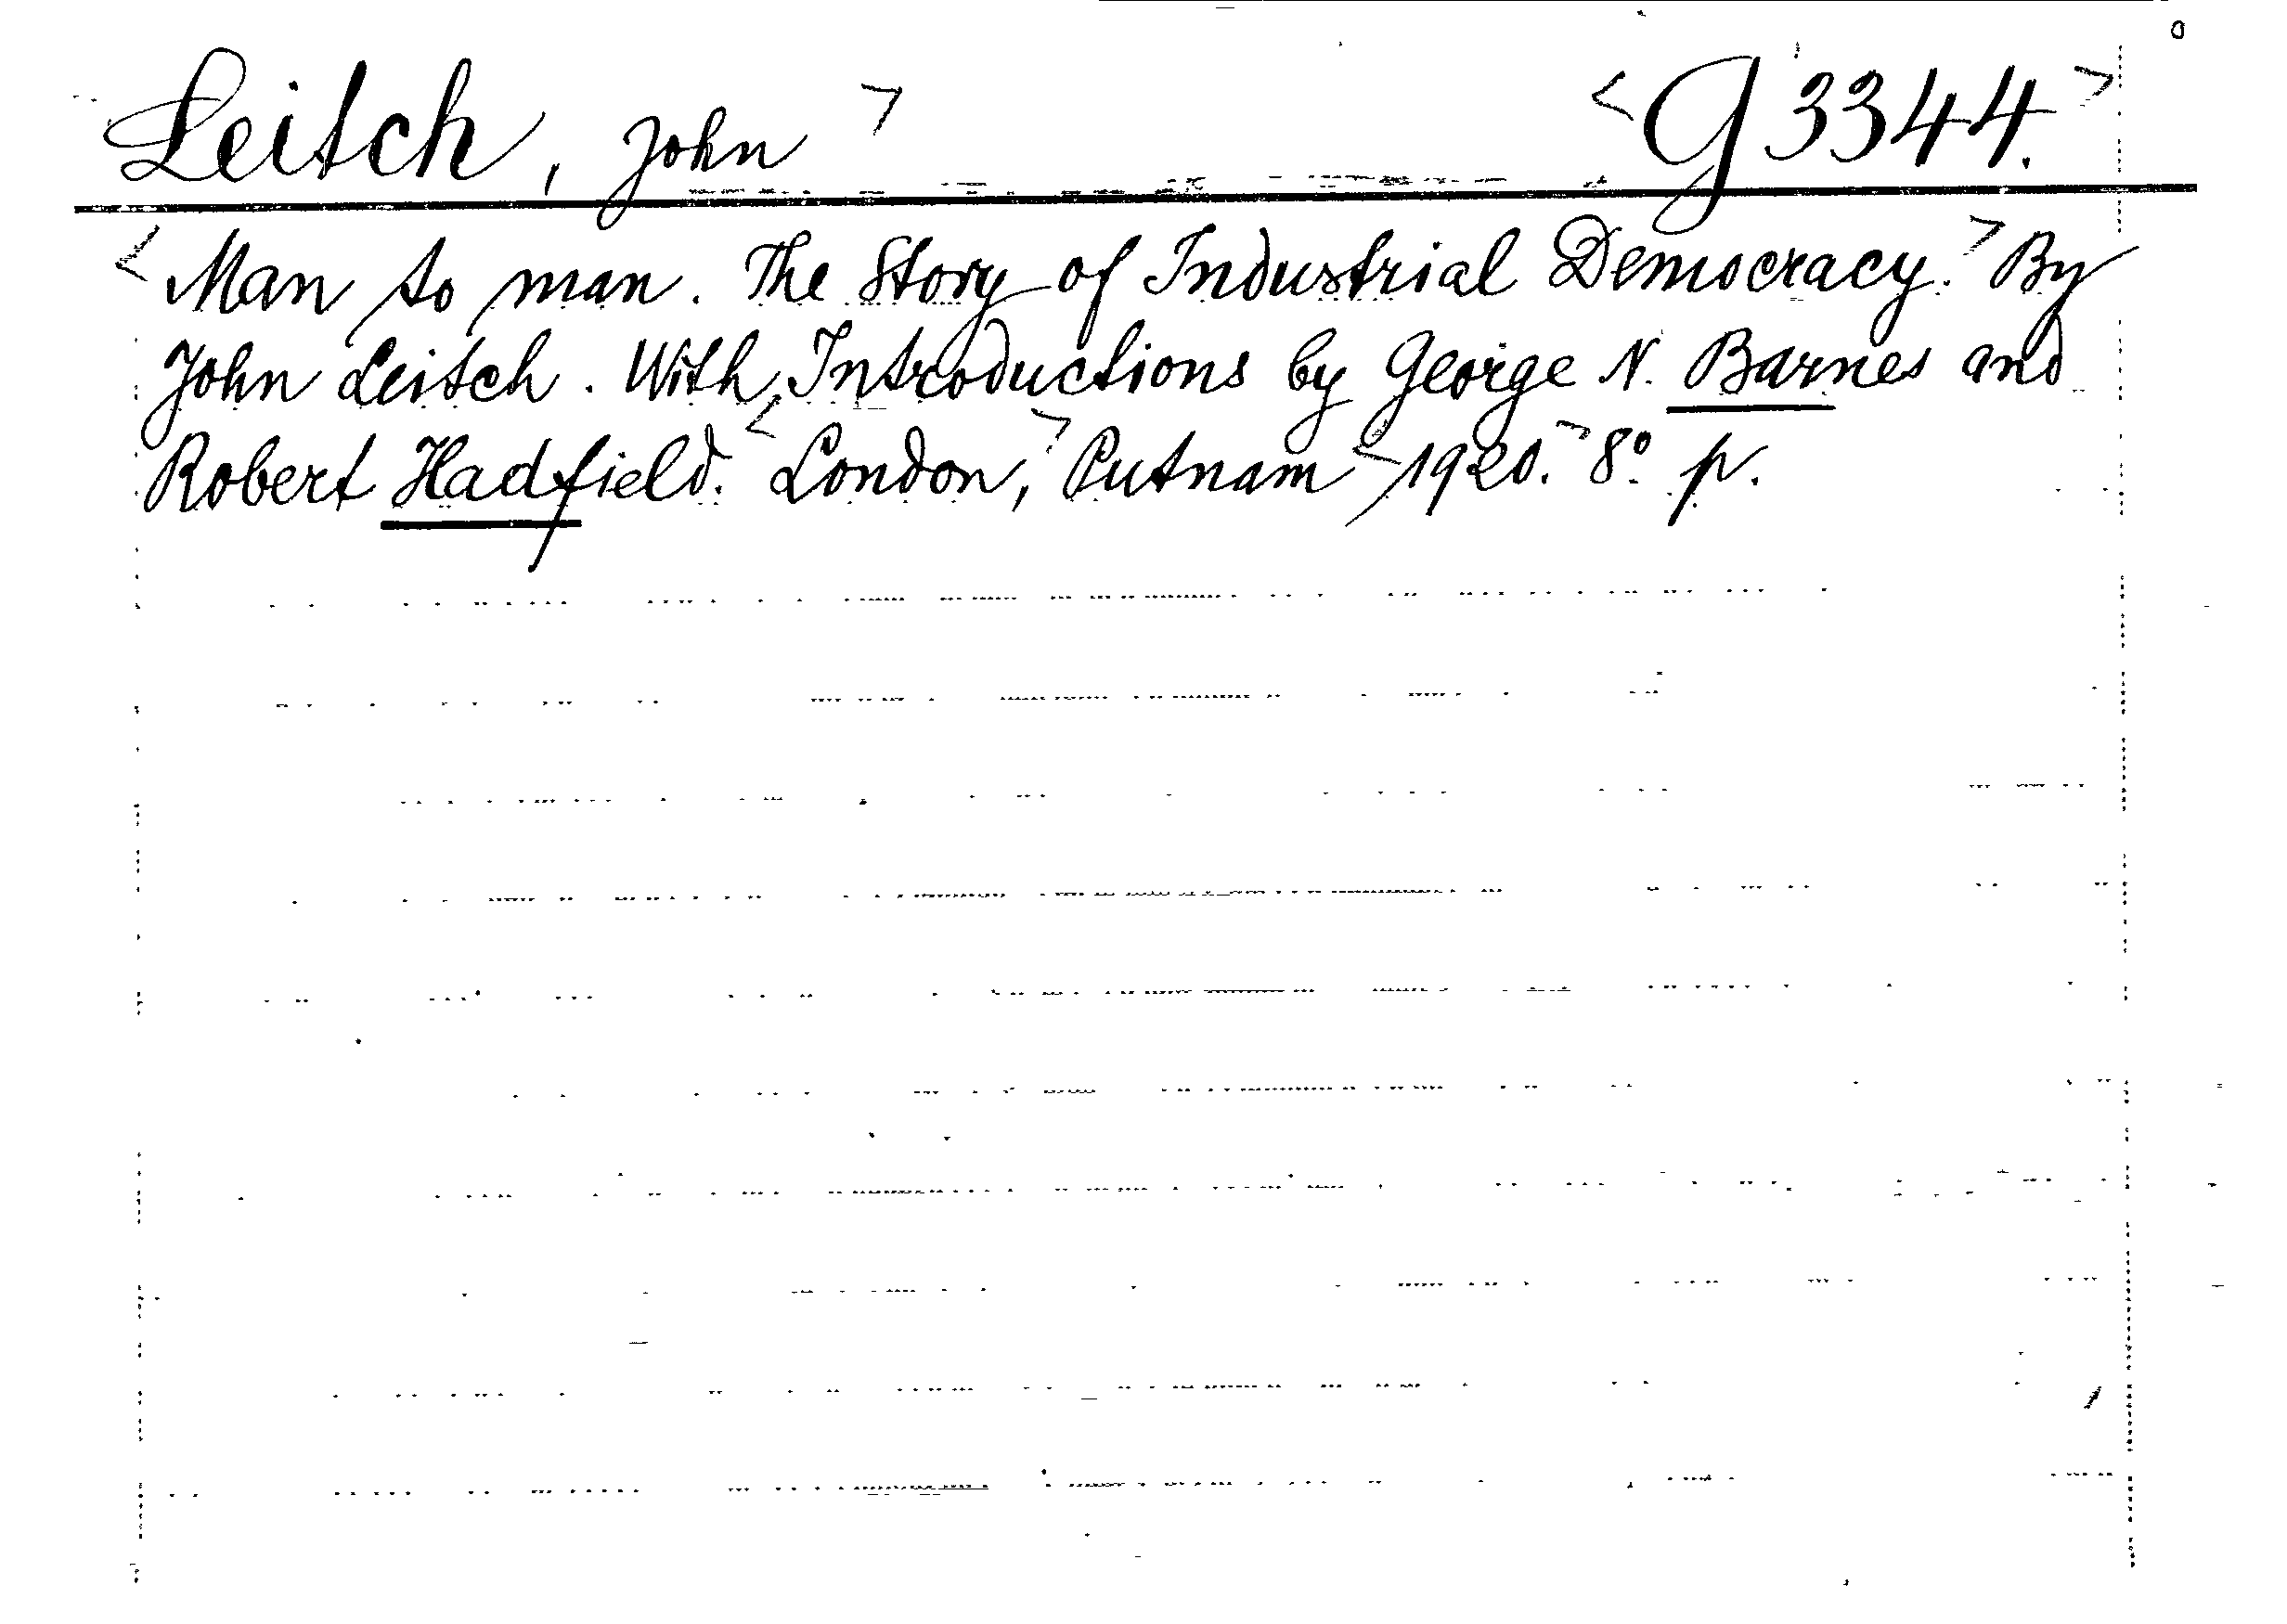 Leitch, John > < G 3344. >
< Man to man. The Story of Industrial Democracy. > By
John Leitch. With Introductions by George N. Barnes and
Robert Hadfield. < London, > Putnam < 1920. > 8° p.